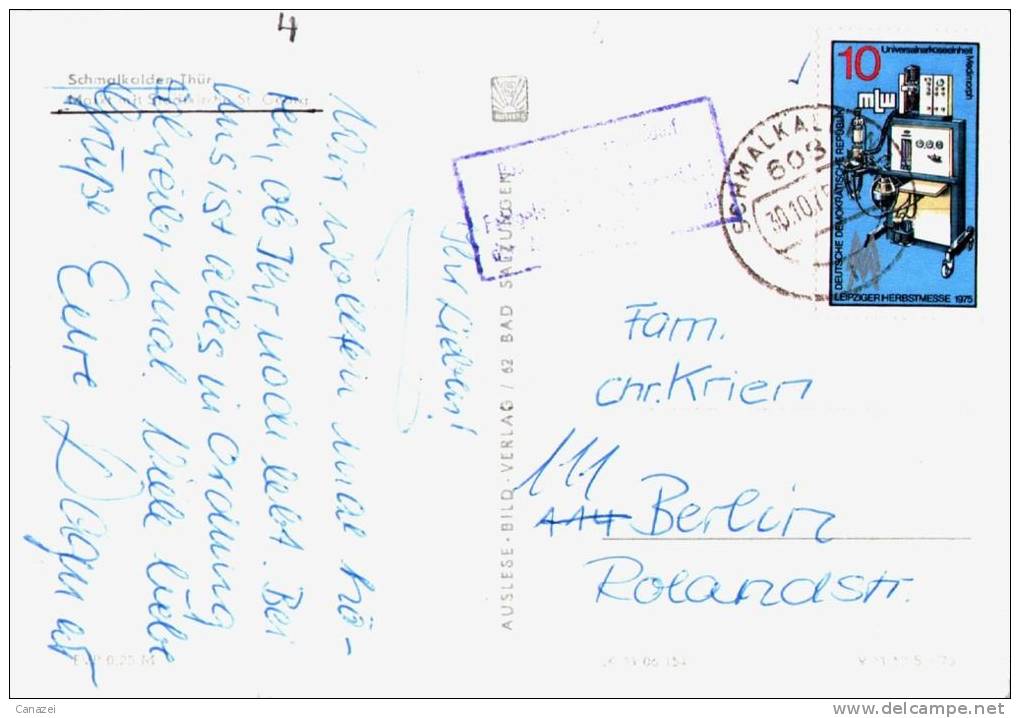 4
Schmalkalden Thür.
Markt mit Stadtkirche St. Georg
Ihr Lieben!
Wir wollten mal hö-
ren, ob Ihr noch lebt. Bei
uns ist alles in Ordnung
Schreibt mal. Viele liebe
Grüße Eure
AUSLESE-BILD-VERLAG / 62 BAD SALZUNGEN
SCHMALKAL
608
30.10.7
10
Universalnarkoseeinheit
Medimorph
mlw
DEUTSCHE DEMOKRATISCHE REPUBLIK
LEIPZIGER HERBSTMESSE 1975
Fam.
Chr. Krien
111
1114 Berlin
Rolandstr.
EVP 0,25 M
Canazei
www.delcampe.net